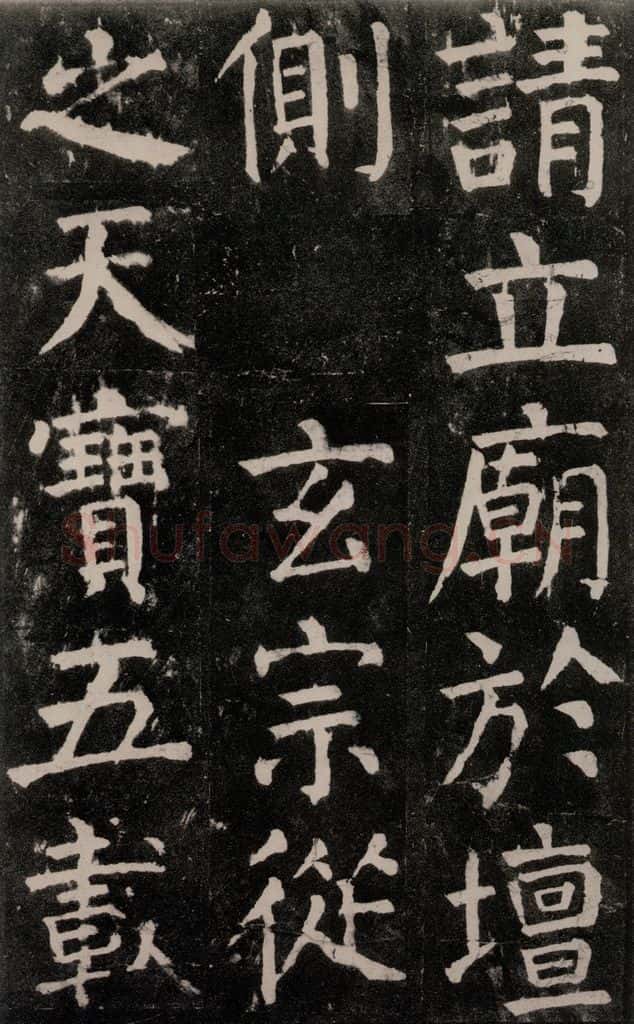 請立廟於壇
側 玄宗從
之天寶五載
Shufawang.CN